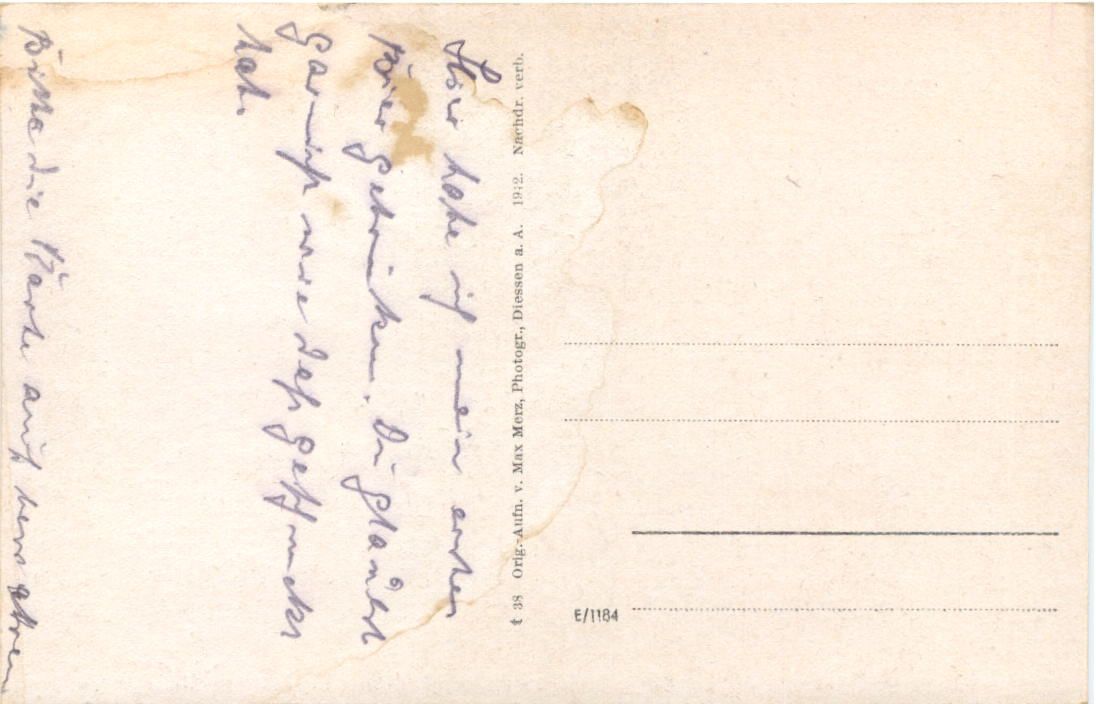 Hier habe ich mein ersten
Bier getrunken. Du glaubst
garnicht wie daß geschmeckt
hat.
Bitte die Karte auf bewahren
38 Orig.-Aufn. v. Max Merz, Photogr., Diessen a. A. 1942. Nachdr. verb.
E/1184